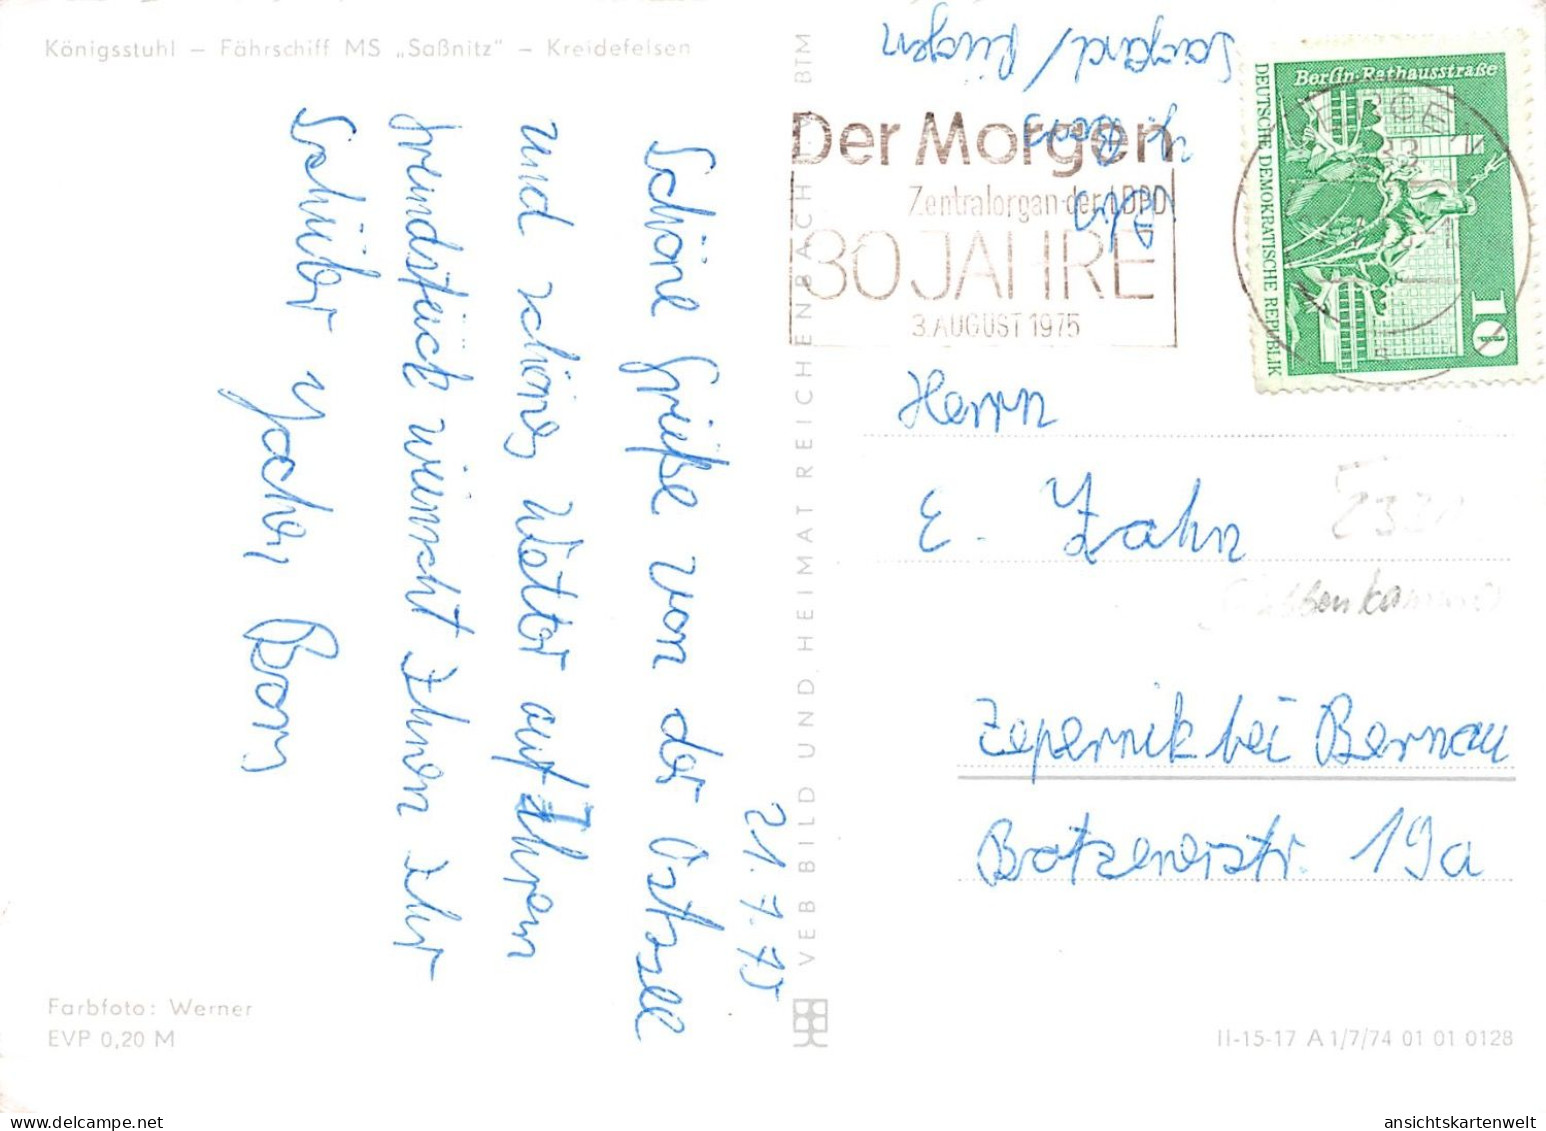 Königsstuhl – Fährschiff MS „Saßnitz" – Kreidefelsen
21.7.75
Schöne Grüße von der Ostsee
und schönes Wetter auf Ihrem
wünscht Ihnen Ihr
Schüler Jochen Bors
Farbfoto: Werner
EVP 0,20 M
VEB BILD UND HEIMAT REICHENBACH I. V. BTM
Bors
Sagard/Rügen
Der Morgen
Zentralorgan der LDPD
30 JAHRE
3. AUGUST 1975
Berlin-Rathausstraße
DEUTSCHE DEMOKRATISCHE REPUBLIK
10
Herrn
E. Zahn
Zepernik bei Bernau
Botzenerstr. 19a
II-15-17 A 1/7/74 01 01 0128
ansichtskartenwelt